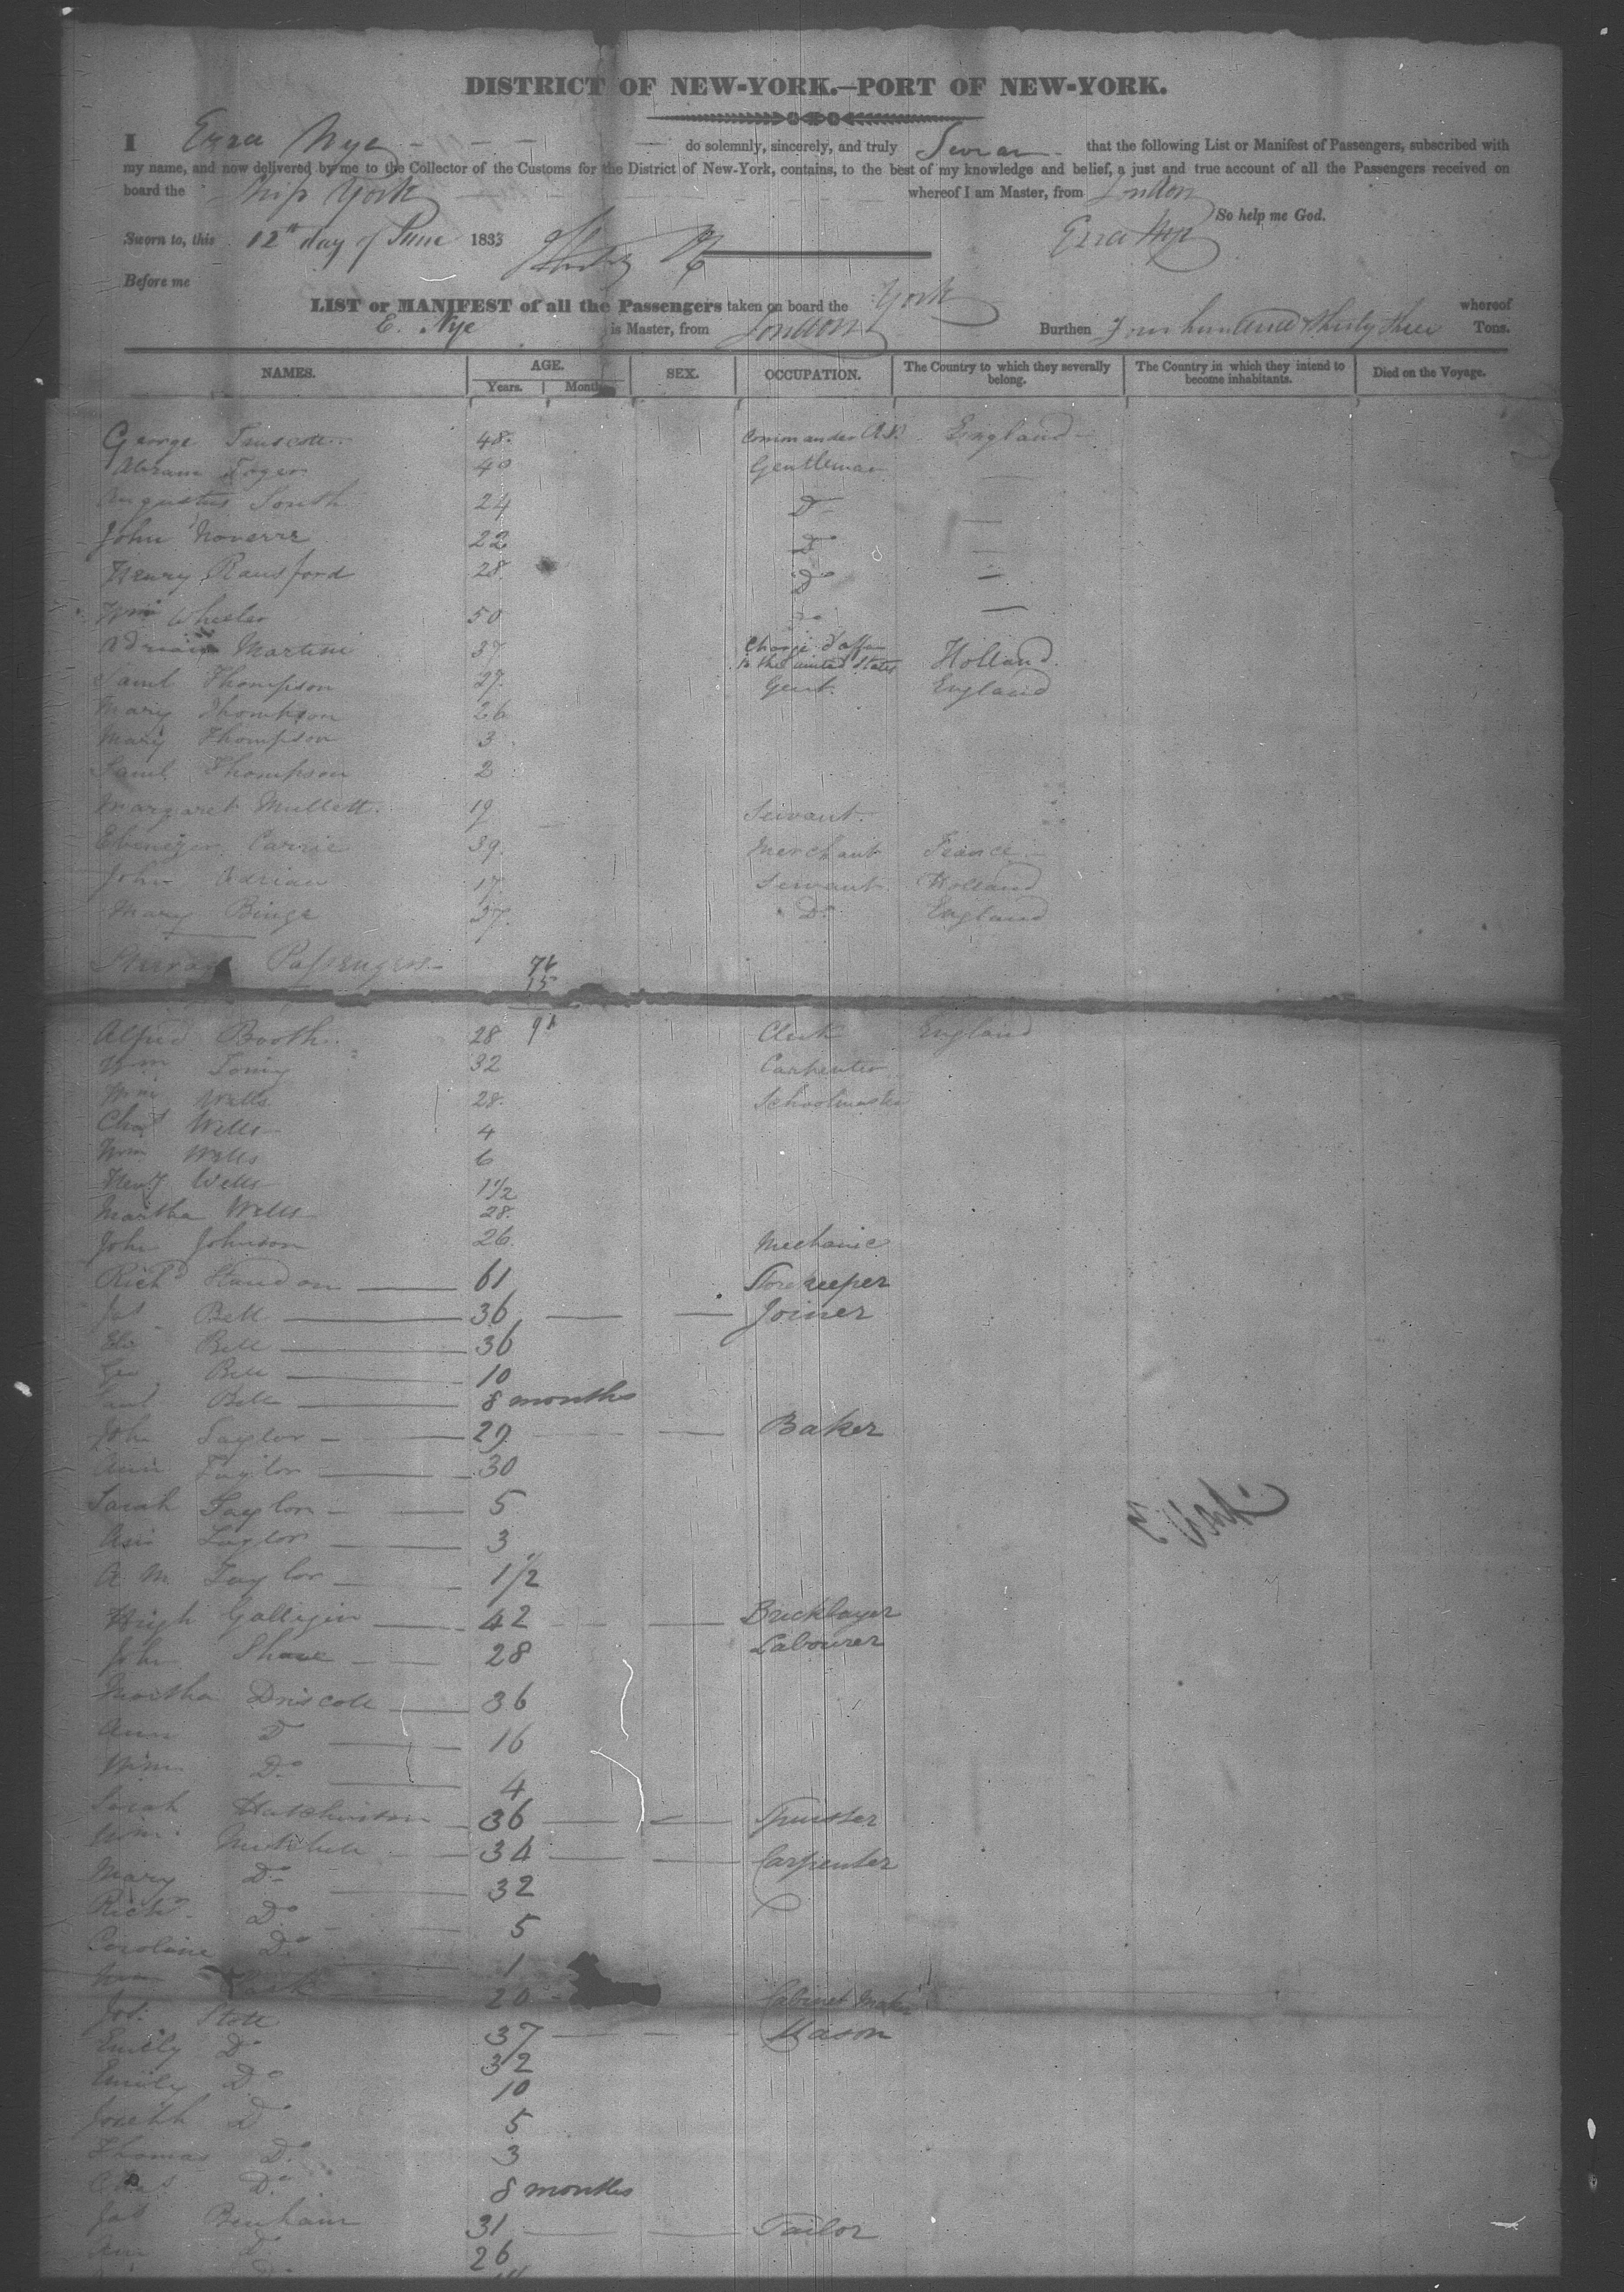 DISTRICT OF NEW-YORK.—PORT OF NEW-YORK.
I Ezra Nye do solemnly, sincerely, and truly Swear that the following List or Manifest of Passengers, subscribed with
my name, and now delivered by me to the Collector of the Customs for the District of New-York, contains, to the best of my knowledge and belief, a just and true account of all the Passengers received on
board the Ship York whereof I am Master, from London
So help me God.
Sworn to, this 12th day of June 1833 Ezra Nye
Before me
LIST or MANIFEST of all the Passengers taken on board the York whereof
E. Nye is Master, from London Burthen Four hundred thirty three Tons.
NAMES. AGE. SEX. OCCUPATION. The Country to which they severally belong. The Country in which they intend to become inhabitants. Died on the Voyage.
Years. Months.
George Truscott 48 Commander R.N. England
Abram 40 Gentleman —
Augustus South 24 Do —
John Noverre 22 Do —
Henry Ransford 28 Do —
Wm Wheeler 50 Do —
Adriain Martini 37 Charge d'affair to the united States Holland
Saml Thompson 27 Gent. England
Mary Thompson 26
Mary Thompson 3
Saml Thompson 2
Margaret Mullett 19 Servant.
Ebenezer Carrie 39 Merchant France
John Adrian 17 Servant Holland
Mary Binge 37 Do England
Steerage Passengers
76
15
91
Alfred Booth 28 Clerk England
Wm 32 Carpenter
Wm Wells 28 Schoolmaster
Chas Wells 4
Wm Wells 6
Henry Wells 1 1/2
Martha Wells 28
John Johnson 26 Mechanic
Richd 61 Storekeeper
Jas Bell 36 Joiner
Eliz Bell 36
Geo Bell 10
Saml Bell 8 months
John Taylor 29 Baker
Ann Taylor 30
Sarah Taylor 5
Ann Taylor 3
A M Taylor 1 1/2
Hugh Galligin 42 Bricklayer
John Shave 28 Labourer
Martha Driscoll 36
Ann Do 16
Wm Do 4
Sarah Hutchinson 36
Wm Mitchell 34 Carpenter
Mary Do 32
Richd Do 5
Caroline Do 1
20 Cabinet Maker
Jos. Stott 37 Mason
Emily Do 32
Emily Do 10
Joseph Do 5
Thomas Do 3
Chas Do 8 months
Jas Benham 31 Tailor
Ann Do 26